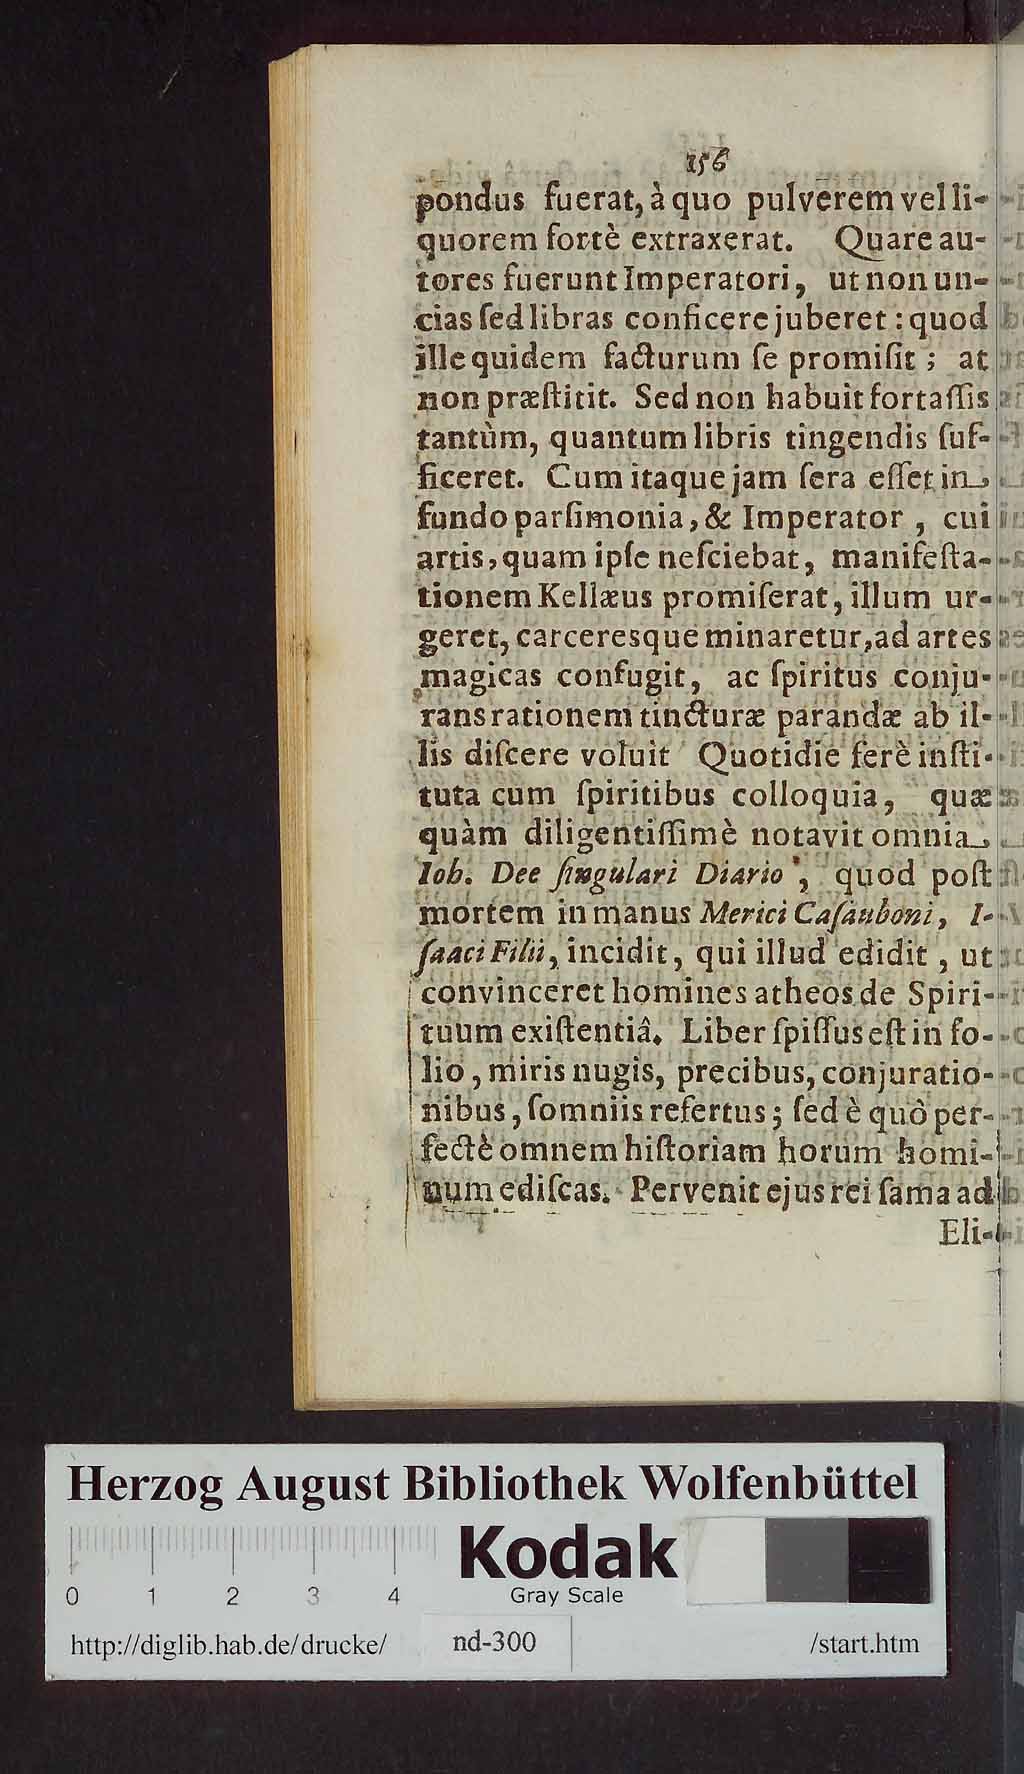 156
pondus fuerat, à quo pulverem vel li-
quorem fortè extraxerat. Quare au-
tores fuerunt Imperatori, ut non un-
cias ſed libras conficere juberet: quod
ille quidem facturum ſe promiſit; at
non præſtitit. Sed non habuit fortaſſis
tantùm, quantum libris tingendis ſuf-
ficeret. Cum itaque jam ſera eſſet in
fundo parſimonia, & Imperator, cui
artis, quam ipſe neſciebat, manifeſta-
tionem Kellæus promiſerat, illum ur-
geret, carceresque minaretur, ad artes
magicas confugit, ac ſpiritus conju-
rans rationem tincturæ parandæ ab il-
lis diſcere voluit Quotidie ferè inſti-
tuta cum ſpiritibus colloquia, quæ
quàm diligentiſſimè notavit omnia
Ioh. Dee ſingulari Diario, quod poſt
mortem in manus Merici Caſauboni, I-
ſaaci Filii, incidit, qui illud edidit, ut
convinceret homines atheos de Spiri-
tuum exiſtentiâ. Liber ſpiſſus eſt in fo-
lio, miris nugis, precibus, conjuratio-
nibus, ſomniis refertus; ſed è quò per-
fectè omnem hiſtoriam horum homi-
num ediſcas. Pervenit ejus rei fama ad
Eli-
Herzog August Bibliothek Wolfenbüttel
Kodak
Gray Scale
0 1 2 3 4
http://diglib.hab.de/drucke/ nd-300 /start.htm